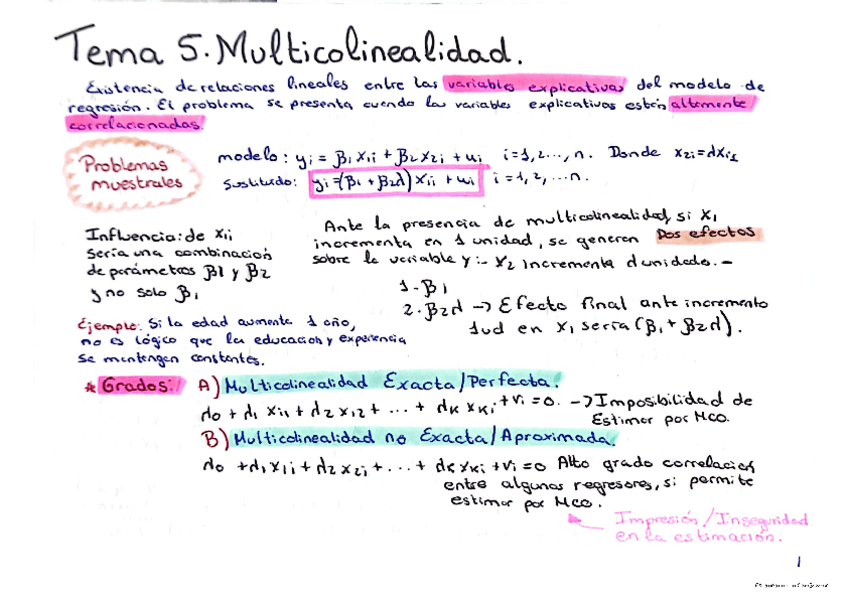 Tema 5. Multicolinealidad.
Existencia de relaciones lineales entre las variables explicativas del modelo de
regresión. El problema se presenta cuando las variables explicativas están altamente
correlacionadas.
Problemas
muestrales
modelo: yi = β1 X1i + β2 X2i + ui i=1,2...,n. Donde x2i=dX1i
Sustituido: yi=(β1 + β2d) X1i + ui i=1,2,...n.
Influencia: de X1i
sería una combinación
de parámetros β1 y β2
y no solo β1
Ante la presencia de multicolinealidad, si X1
incrementa en 1 unidad, se generan Dos efectos
sobre la variable y:- X2 incrementa d unidades.-
1-β1
2-β2d -> Efecto final ante incremento
1ud en X1 sería (β1+β2d).
Ejemplo: Si la edad aumenta 1 año,
no es lógico que la educación y experiencia
se mantengan constantes.
* Grados: A) Multicolinealidad Exacta/Perfecta.
do + d1 Xi1 + d2 Xi2 + ... + dK XKi + vi = 0. -> Imposibilidad de
Estimar por MCO.
B) Multicolinealidad no Exacta/Aproximada.
do + d1X1i + d2 X2i + ... + dK XKi + vi = 0 Alto grado correlación
entre algunos regresores, si permite
estimar por MCO.
Impresión/Inseguridad
en la estimación.
1